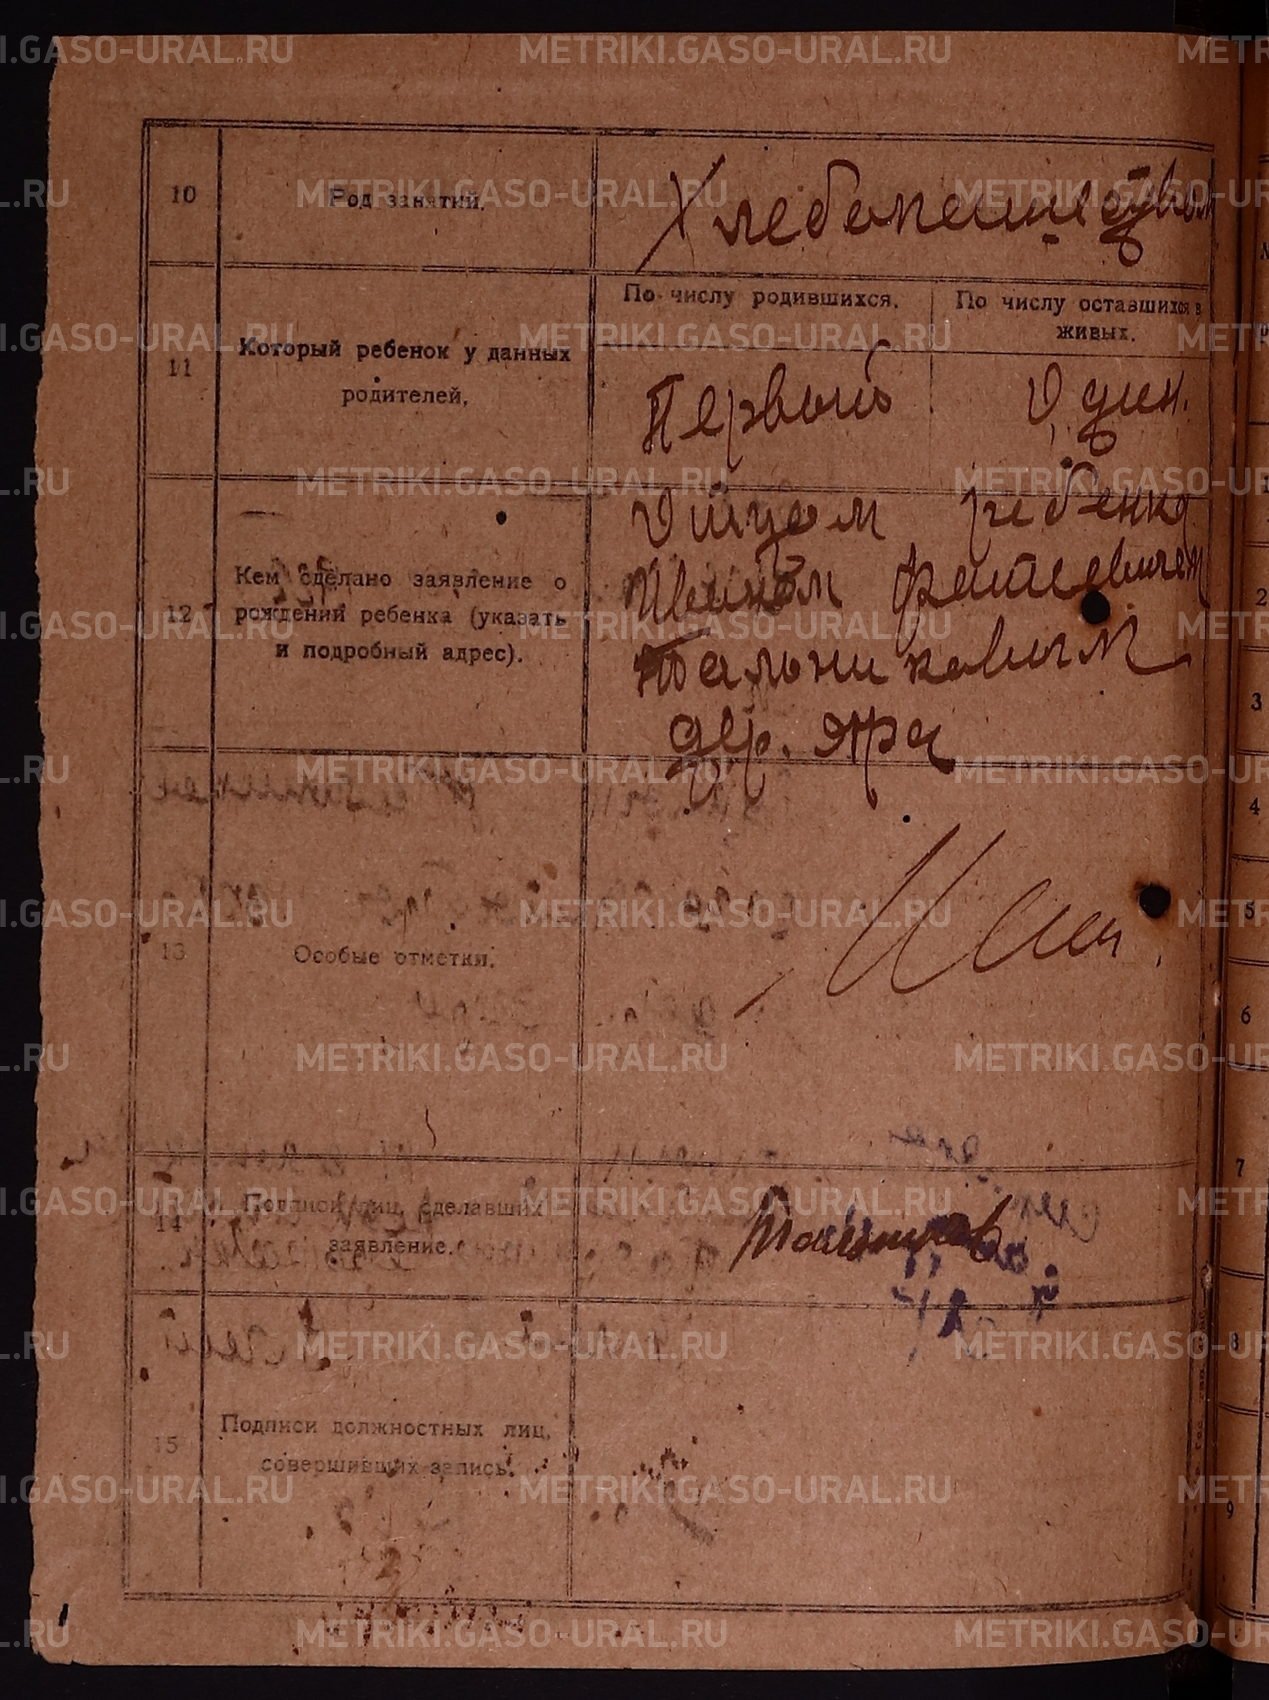 METRIKI.GASO-URAL.RU
10
Род занятий.
Хлебопашеством
11
Который ребенок у данных
родителей.
По числу родившихся.
По числу оставшихся в
живых.
Первый
Один.
12
Кем сделано заявление о
рождении ребенка (указать
и подробный адрес).
Отцом ребенка
Иваном
Тальниковым
дер. Яра
13
Особые отметки.
14
Подписи лиц, сделавших
заявление.
Тальников
15
Подписи должностных лиц,
совершивших запись.
2
3
4
5
6
7
8
9